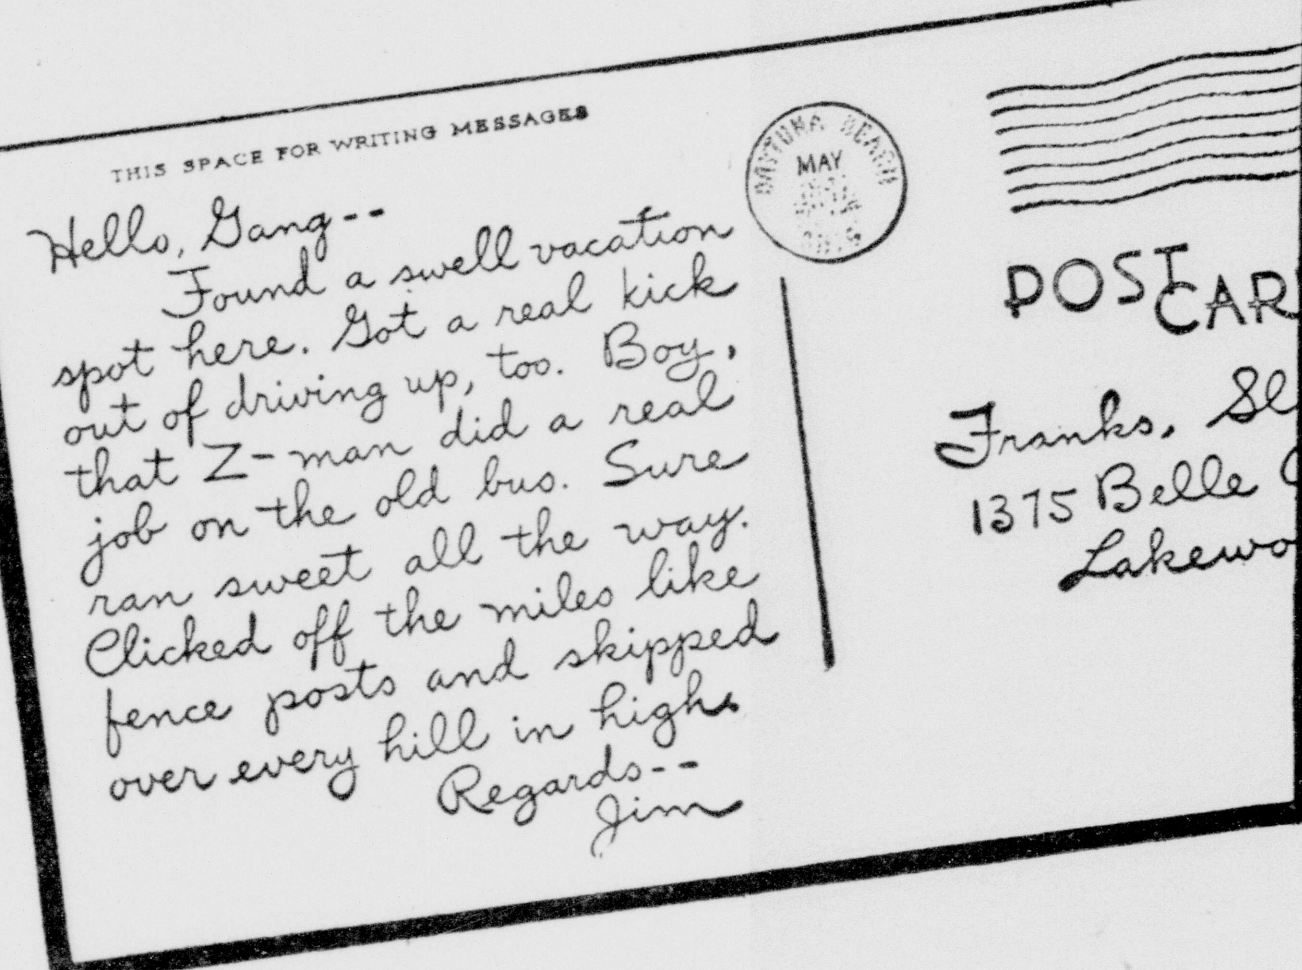 THIS SPACE FOR WRITING MESSAGES
Hello, Gang--
Found a swell vacation
spot here. Got a real kick
out of driving up, too. Boy,
that Z-man did a real
job on the old bus. Sure
ran sweet all the way.
Clicked off the miles like
fence posts and skipped
over every hill in high.
Regards--
Jim
DAYTONA BEACH
MAY
POST
CAR
Franks, Sl
1375 Belle
Lakewo